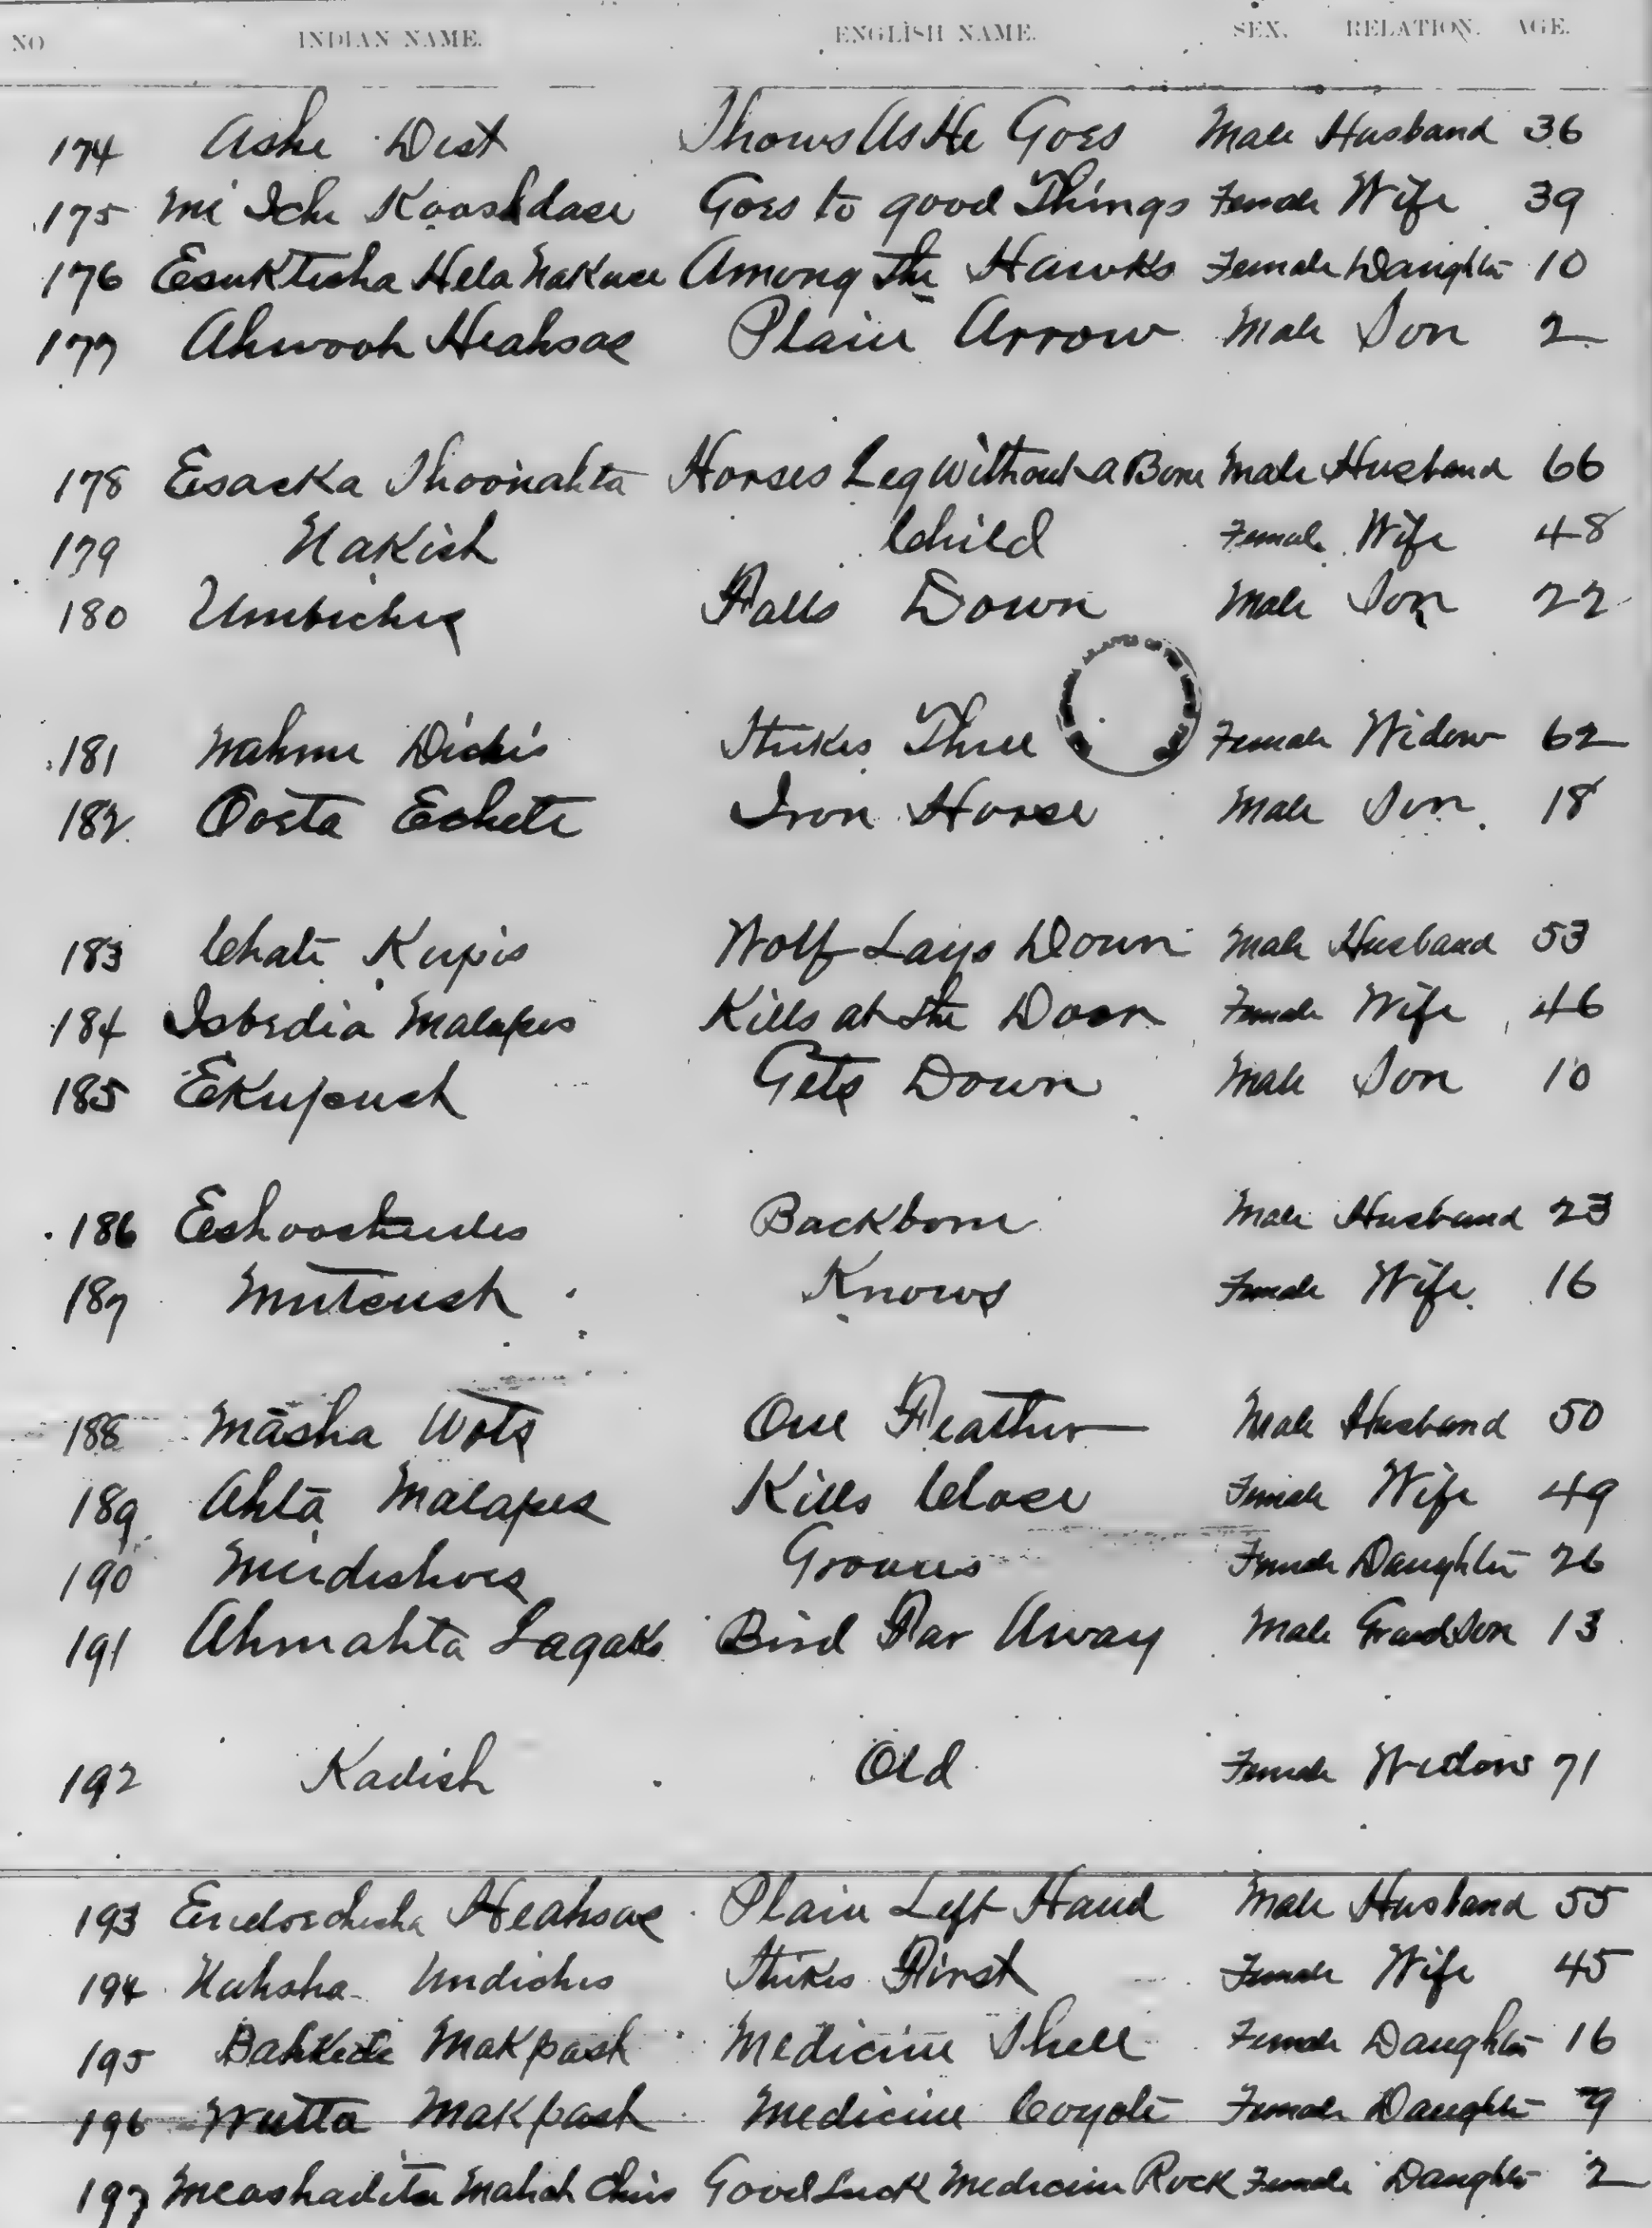 NO INDIAN NAME. ENGLISH NAME. SEX. RELATION. AGE.
174 Ashe Dest Shows As He Goes Male Husband 36
175 Mi Iche Kooshdase Goes to good Things Female Wife 39
176 Esuktisha Hela Nakuse Among The Hawks Female Daughter 10
177 Ahwooh Heahsas Plain Arrow Male Son 2
178 Esacka Shoonahta Horses Leg Without a Bone Male Husband 66
179 Nakish Child Female Wife 48
180 Umbiches Falls Down Male Son 22
181 Nahme Dichis Strikes Three Female Widow 62
182 Ooeta Echete Iron Horse Male Son 18
183 Chate Kupis Wolf Lays Down Male Husband 53
184 Isbedia Malapes Kills at the Door Female Wife 46
185 Ekupush Gets Down Male Son 10
186 Backbone Male Husband 23
187 Muteush Knows Female Wife 16
188 Masha Wots One Feather Male Husband 50
189 Ahta Malapes Kills Close Female Wife 49
190 Female Daughter 26
191 Ahmahta Lagaks Bird Far Away Male GrandSon 13
192 Kadish Old Female Widow 71
193 Heahsas Plain Left Hand Male Husband 55
194 Kuhsha Undichis Strikes First Female Wife 45
195 Makpash Medicine Shell Female Daughter 16
196 Wutta Makpash Medicine Coyote Female Daughter 9
197 Good Luck Medicine Rock Female Daughter 2